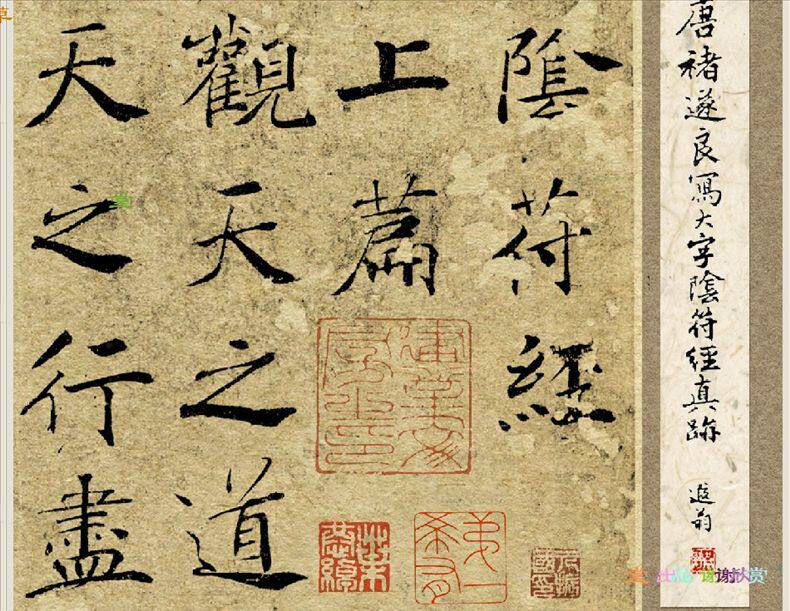 唐褚遂良寫大字陰符經真跡
遐翁
陰符經
上篇
觀天之道
天之行盡
谢谢欣赏